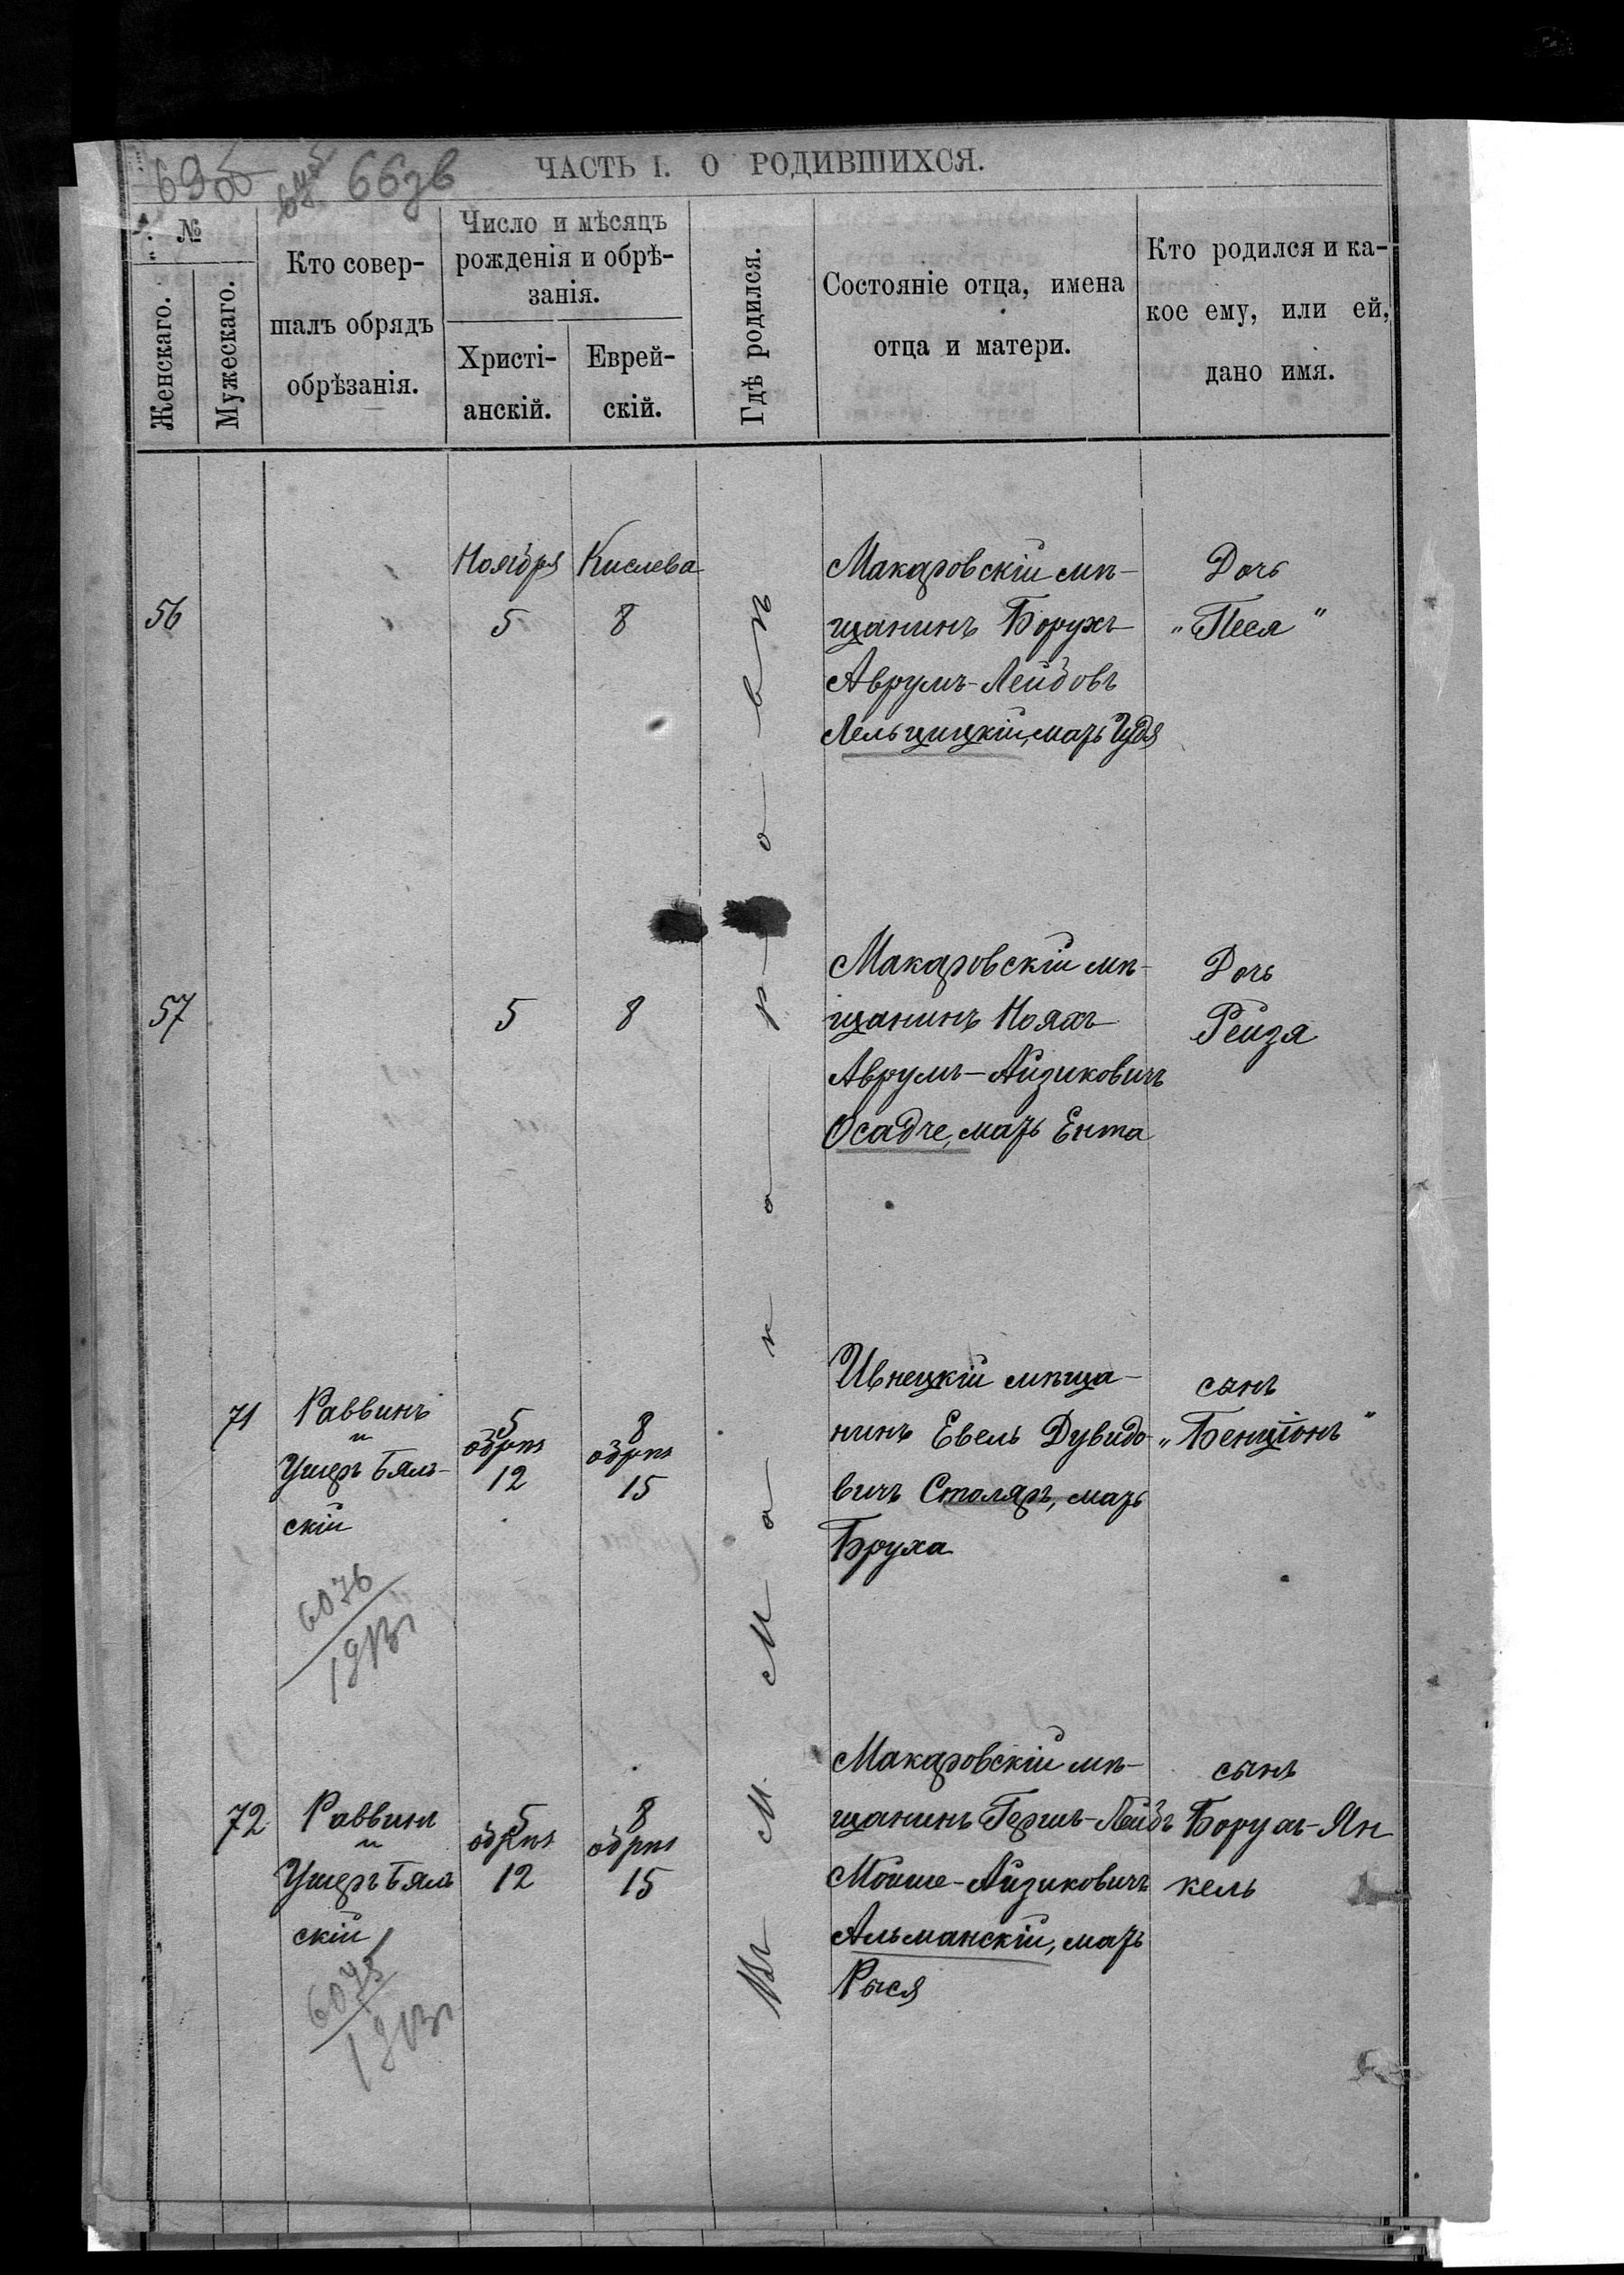 ЧАСТЬ I. О РОДИВШИХСЯ.
66зв
№
Женскаго.
Мужескаго.
Кто совер-
шалъ обрядъ
обрѣзанія.
Число и мѣсяцъ
рожденія и обрѣ-
занія.
Христі-
анскій.
Еврей-
скій.
Гдѣ родился.
Состояніе отца, имена
отца и матери.
Кто родился и ка-
кое ему, или ей,
дано имя.
Въ М. Макаровѣ
56
Ноября
5
Кислева
8
Макаровскій мѣ-
щанинъ Борухъ
Аврумъ-Лейбовъ
Лельчицкій, мать Чудя
Дочь
„Песя"
57
5
8
Макаровскій мѣ-
щанинъ Нояхъ
Аврумъ-Айзиковичъ
Осадче, мать Ента
Дочь
Рейзя
71
Раввинъ
и
Ушеръ Бяль-
скій
6076
1913г
5
обрѣз
12
8
обрѣз
15
Ивнецкій мѣща-
нинъ Евель Дувидо-
вичъ Столяръ, мать
Бруха
сынъ
„Бенціонъ"
72
Раввинъ
и
Ушеръ Бяль
скій
6075
1913г
5
обрѣз
12
8
обрѣз
15
Макаровскій мѣ-
щанинъ Гершъ-Лейбъ
Мойше-Айзиковичъ
Альманскій, мать
Рыся
сынъ
Борухъ-Ян
кель